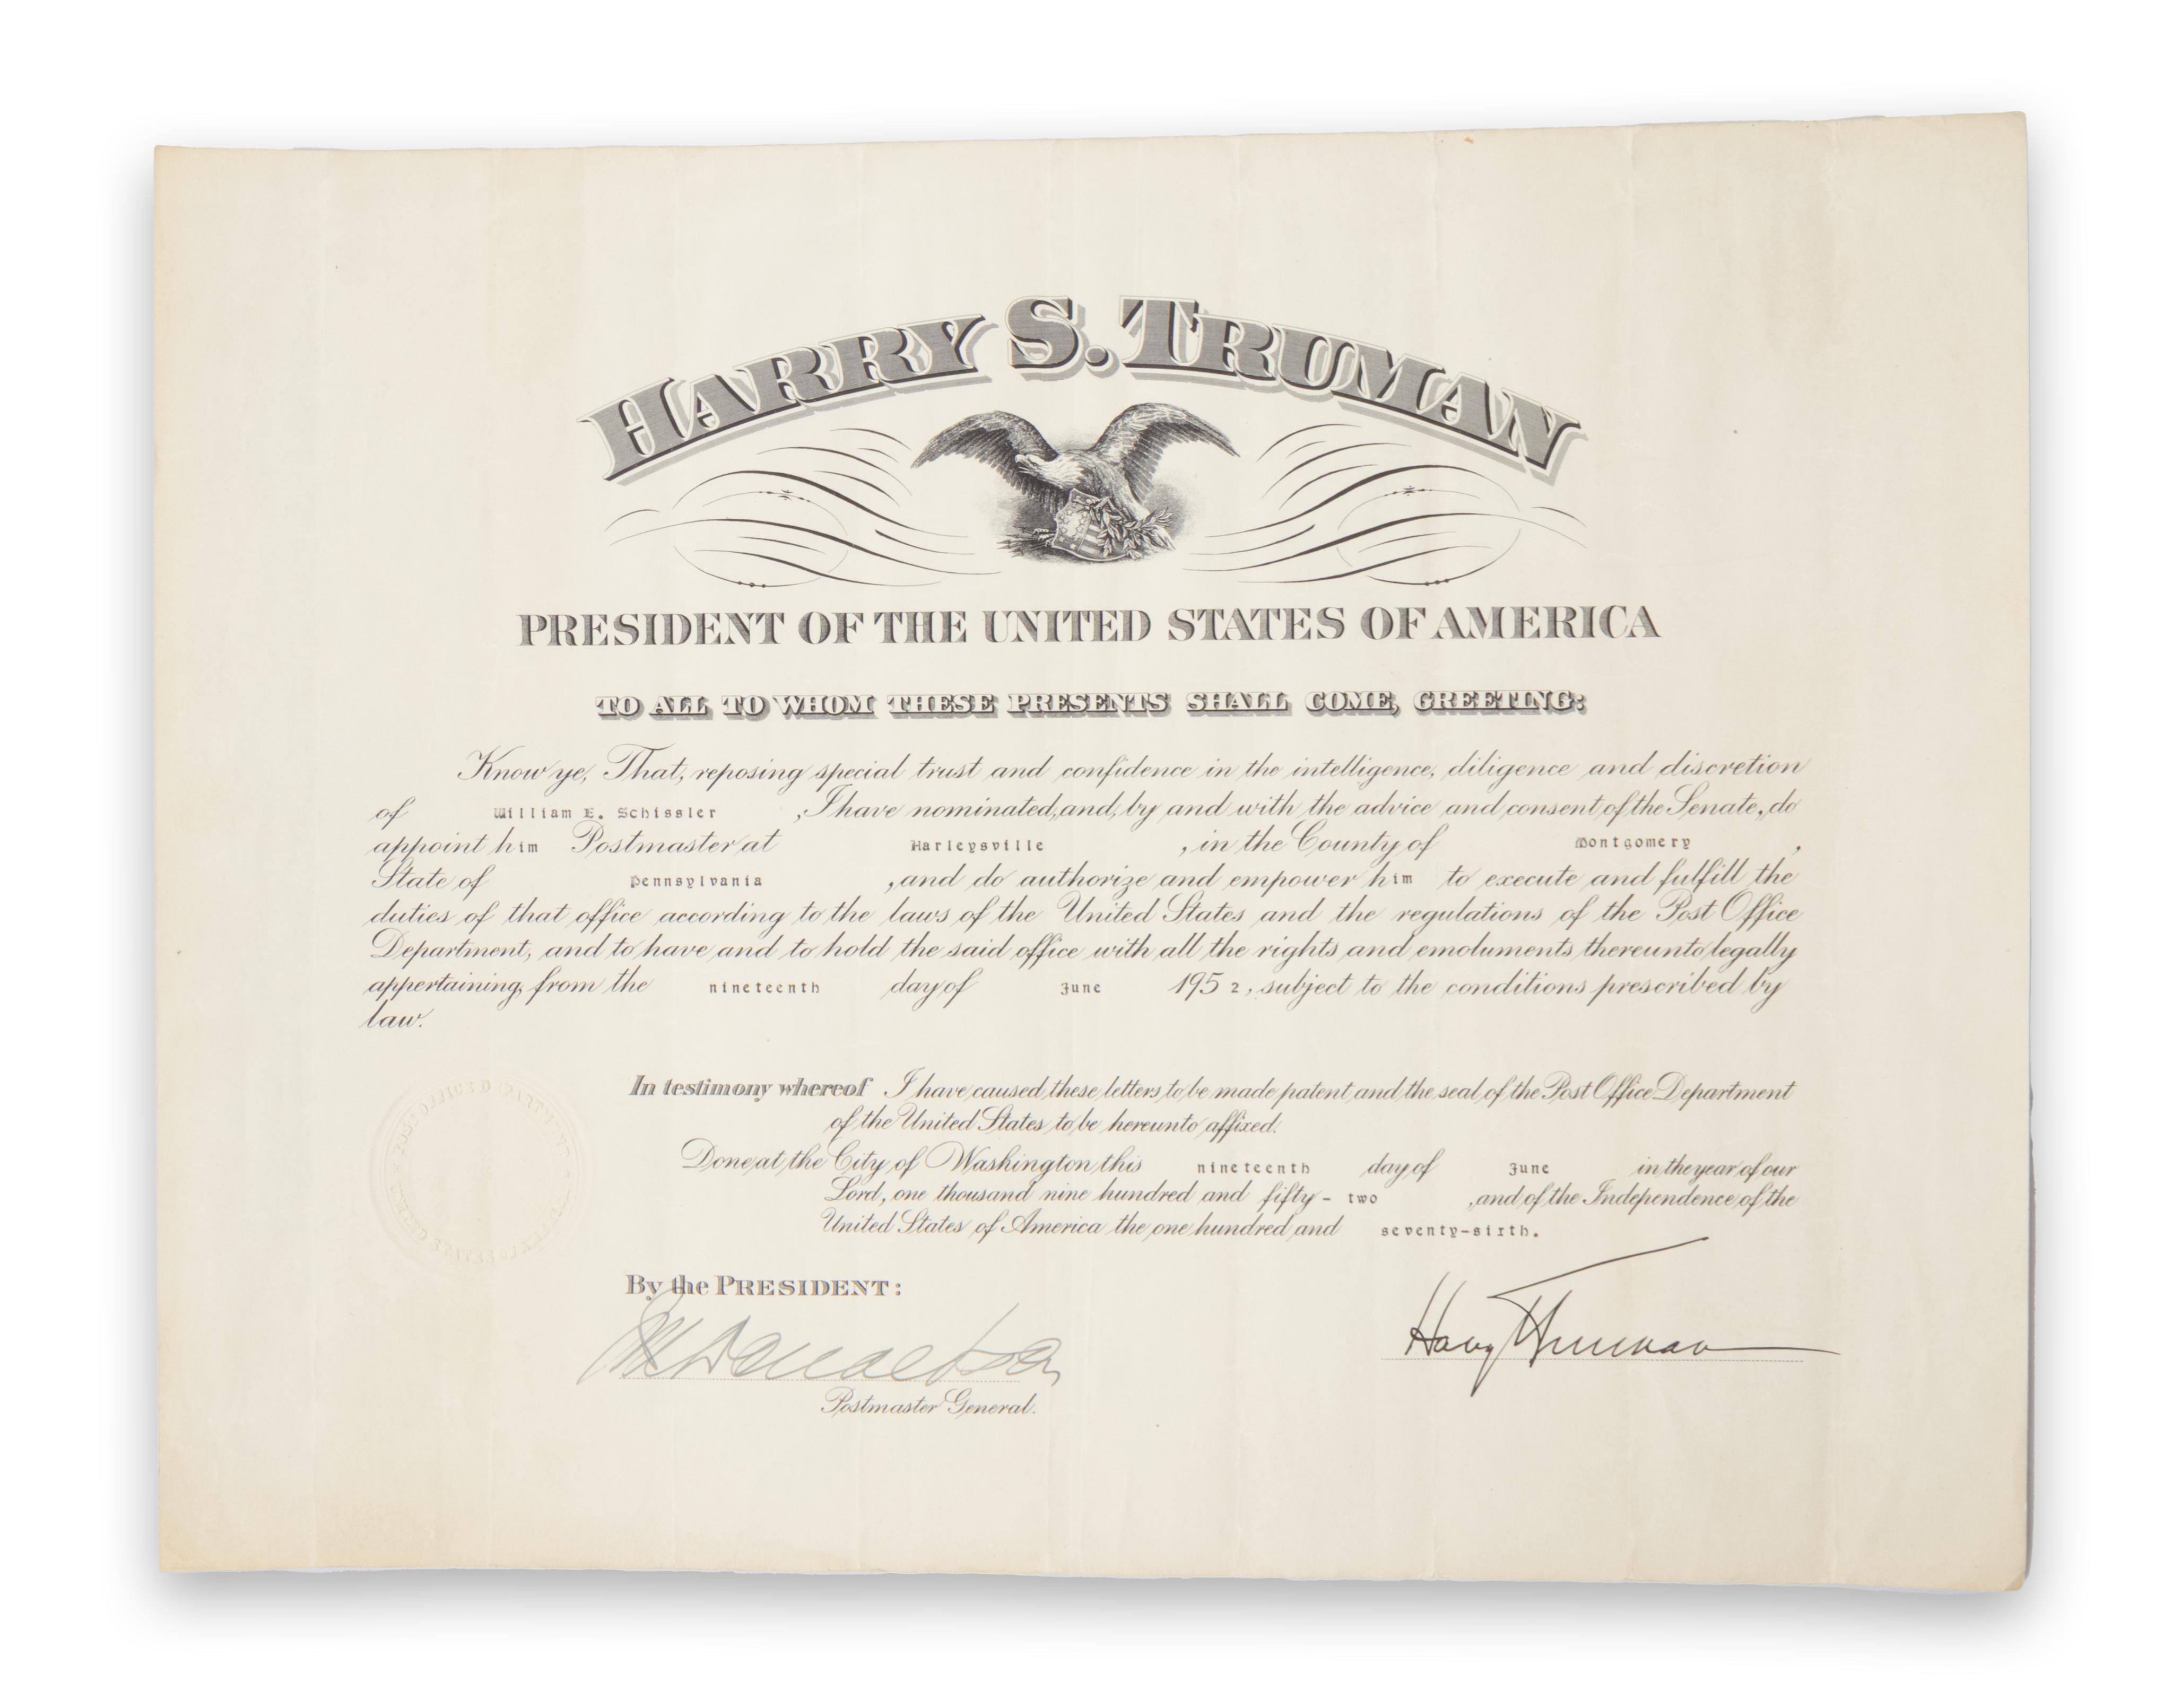 HARRY S. TRUMAN
PRESIDENT OF THE UNITED STATES OF AMERICA
TO ALL TO WHOM THESE PRESENTS SHALL COME, GREETING:
Know ye, That, reposing special trust and confidence in the intelligence, diligence and discretion
of William E. Schissler, I have nominated, and, by and with the advice and consent of the Senate, do
appoint him Postmaster at Harleysville, in the County of Montgomery,
State of Pennsylvania, and do authorize and empower him to execute and fulfill the
duties of that office according to the laws of the United States and the regulations of the Post Office
Department, and to have and to hold the said office with all the rights and emoluments thereunto legally
appertaining, from the nineteenth day of June 1952, subject to the conditions prescribed by
law.
In testimony whereof I have caused these letters to be made patent and the seal of the Post Office Department
of the United States to be hereunto affixed.
Done at the City of Washington this nineteenth day of June in the year of our
Lord, one thousand nine hundred and fifty-two, and of the Independence of the
United States of America the one hundred and seventy-sixth.
By the PRESIDENT:
Harry Truman
JM Donaldson
Postmaster General.